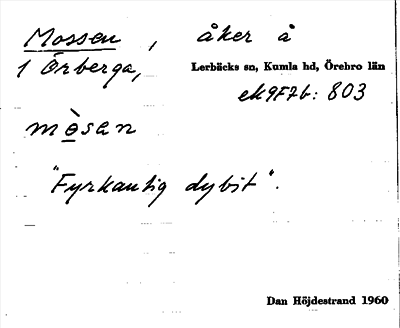 Mossen, åker å
1 Örberga,
Lerbäcks sn, Kumla hd, Örebro län
ek9F7b: 803
mòsen
"Fyrkantig dybit".
Dan Höjdestrand 1960